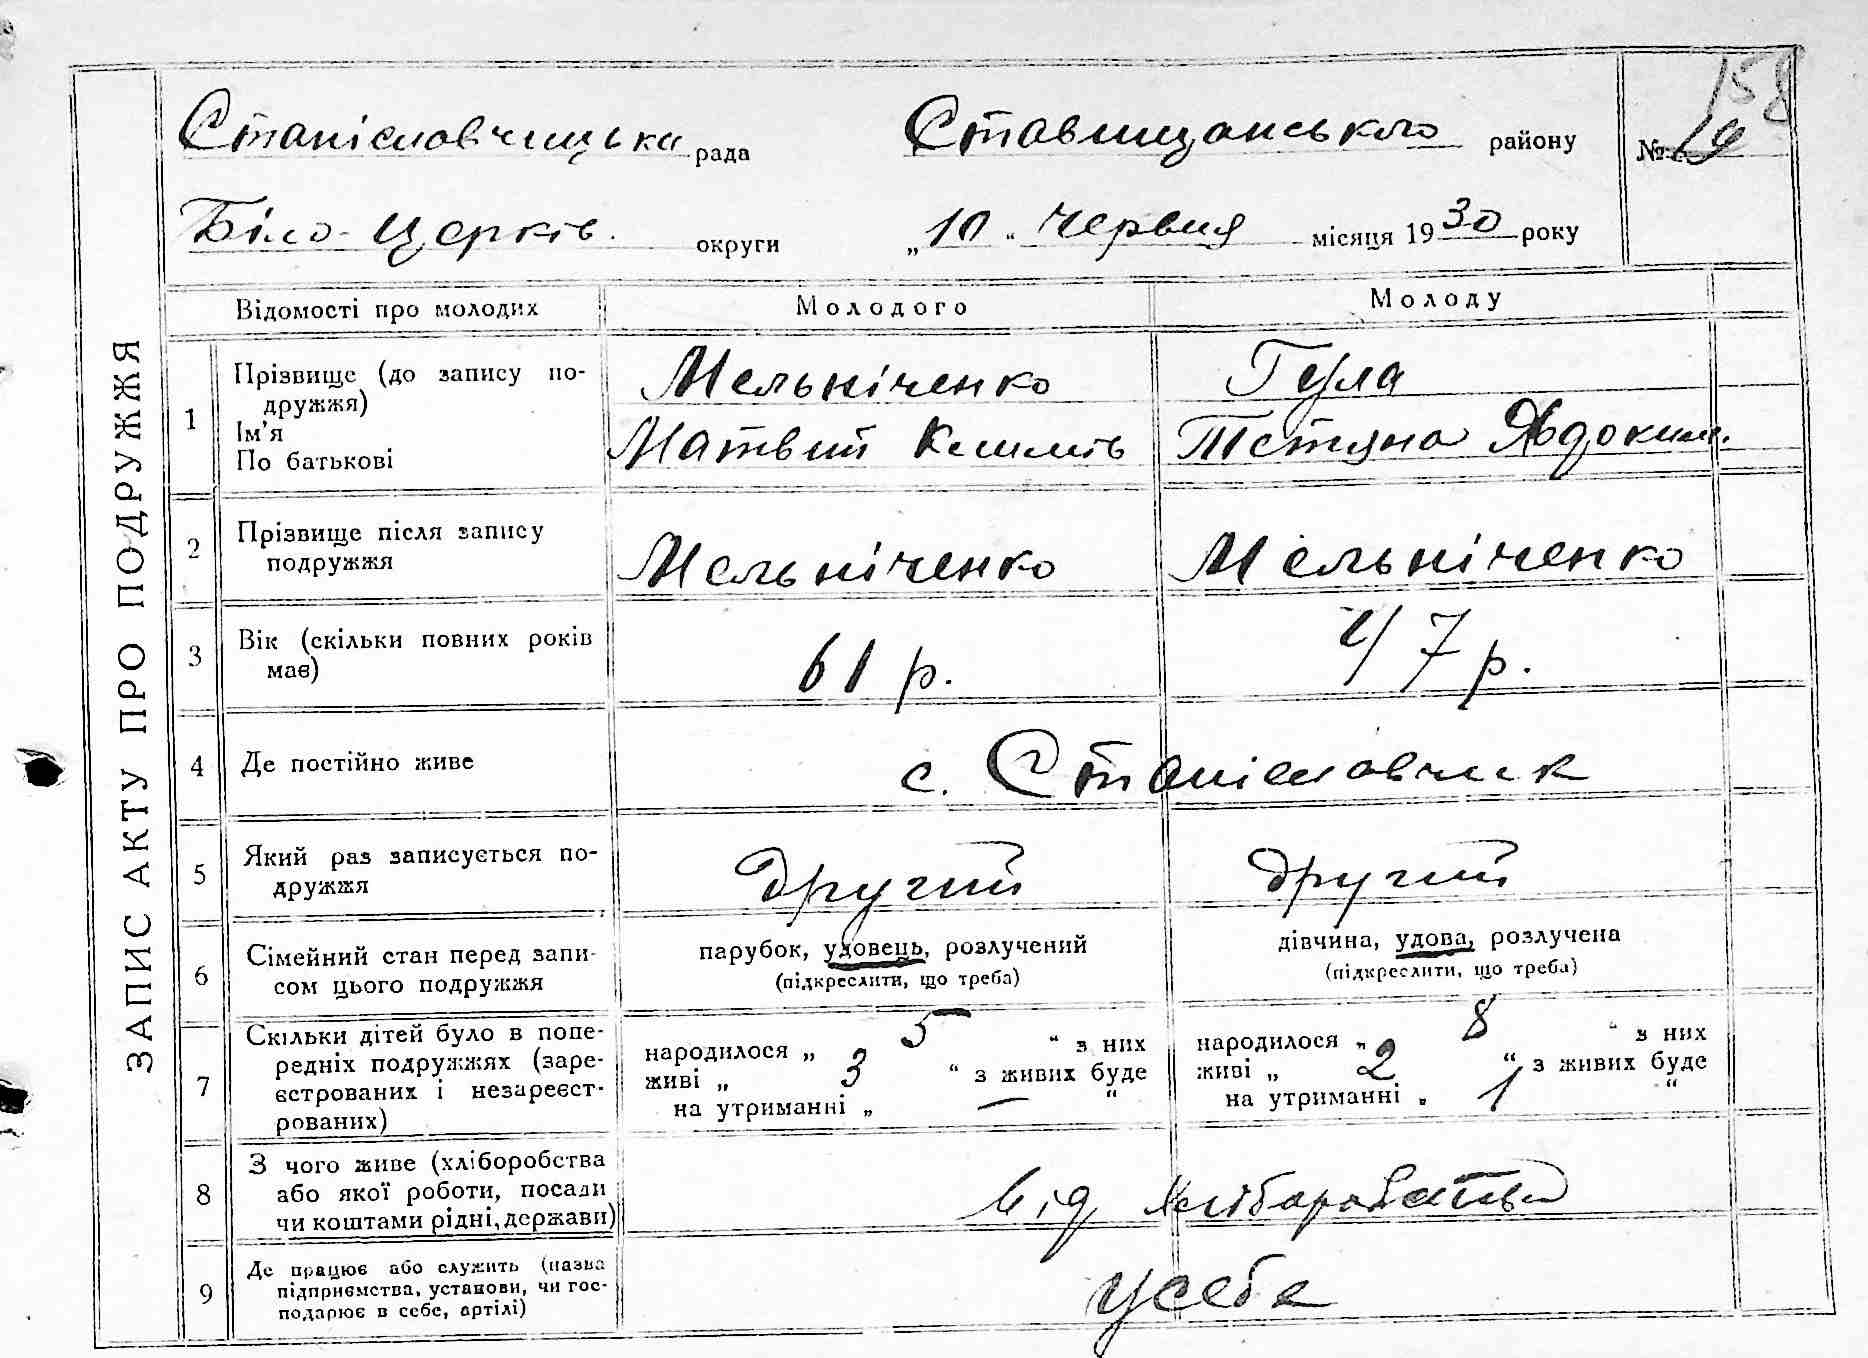 158
Станіславчицька рада Ставищанського району № 19
Біло-Церків. округи „10“ червня місяця 1930 року
ЗАПИС АКТУ ПРО ПОДРУЖЖЯ
Відомості про молодих Молодого Молоду
1 Прізвище (до запису по-
дружжя) Мельніченко Гула
Ім'я
По батькові Матвий Климів Тетяна Явдоким.
2 Прізвище після запису
подружжя Мельніченко Мельніченко
3 Вік (скільки повних років
має) 61 р. 47 р.
4 Де постійно живе с. Станіславчик
5 Який раз записується по-
дружжя другий другий
6 Сімейний стан перед запи-
сом цього подружжя
парубок, удовець, розлучений дівчина, удова, розлучена
(підкреслити, що треба) (підкреслити, що треба)
7 Скільки дітей було в попе-
редніх подружжях (заре-
єстрованих і незареєст-
рованих)
народилося „ 5 “ з них народилося „ 8 “ з них
живі „ 3 “ з живих буде живі „ 2 “ з живих буде
на утриманні „ — “ на утриманні „ 1 “
8 З чого живе (хліборобства
або якої роботи, посади
чи коштами рідні, держави) від хліборобства
9 Де працює або служить (назва
підприємства, установи, чи гос-
подарює в себе, артілі) у себе